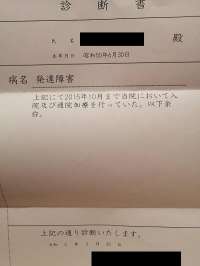 診断書
氏名 殿
生年月日 昭和50年6月30日
病名 発達障害
上記にて2015年10月まで当院において入
院及び通院加療を行っていた。以下余
白。
上記の通り診断いたします。